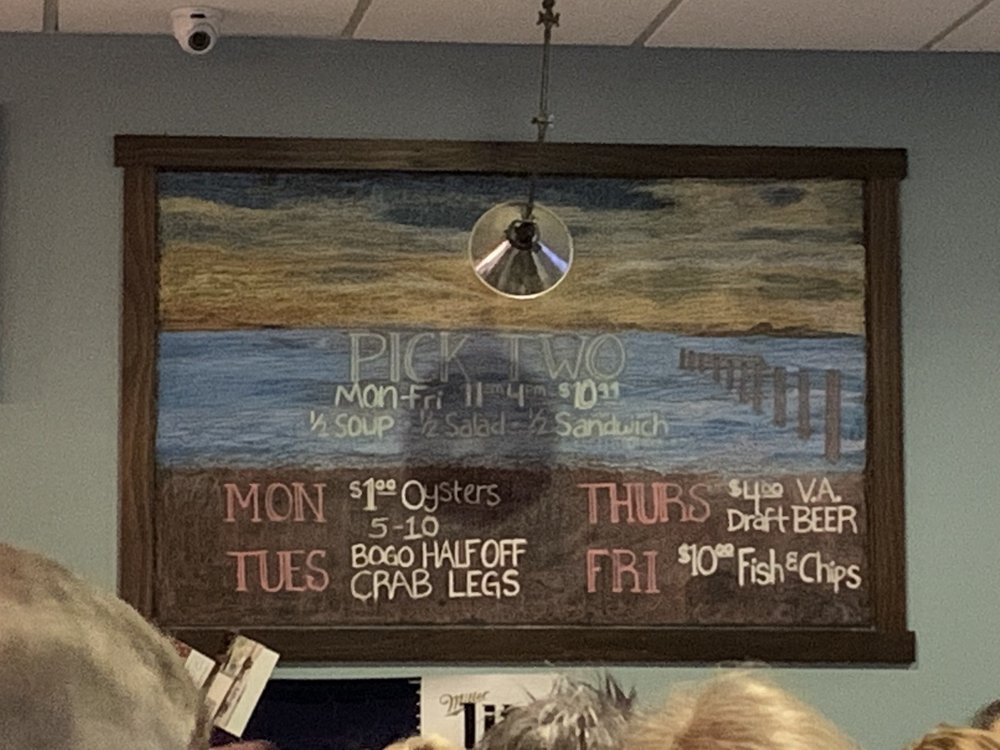 PICK TWO
Mon-Fri 11am 4pm $10.99
½ Soup - ½ Salad - ½ Sandwich
MON $1.00 Oysters
5-10
TUES BOGO HALF OFF
CRAB LEGS
THURS $4.00 V.A.
Draft BEER
FRI $10.00 Fish & Chips
Miller